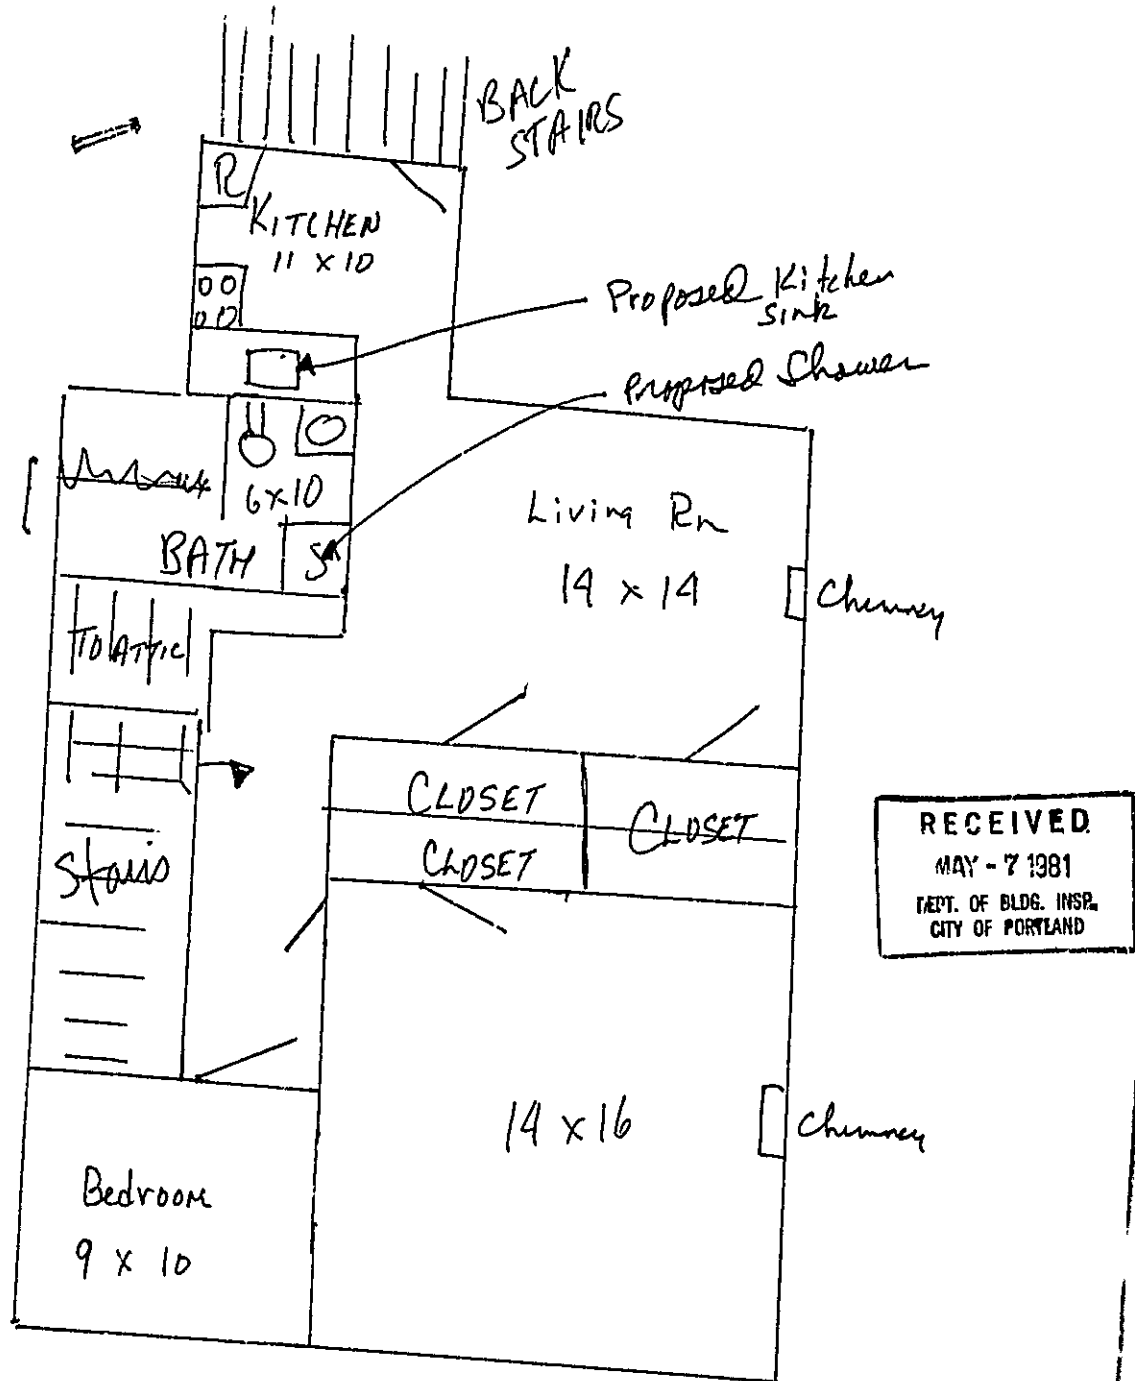 BACK
STAIRS
R
KITCHEN
11 x 10
Proposed Kitchen
sink
Proposed Shower
6x10
BATH
Living Rm
14 x 14
Chimney
TO ATTIC
CLOSET
CLOSET
CLOSET
Stairs
RECEIVED
MAY - 7 1981
DEPT. OF BLDG. INSP.
CITY OF PORTLAND
14 x 16
Chimney
Bedroom
9 x 10